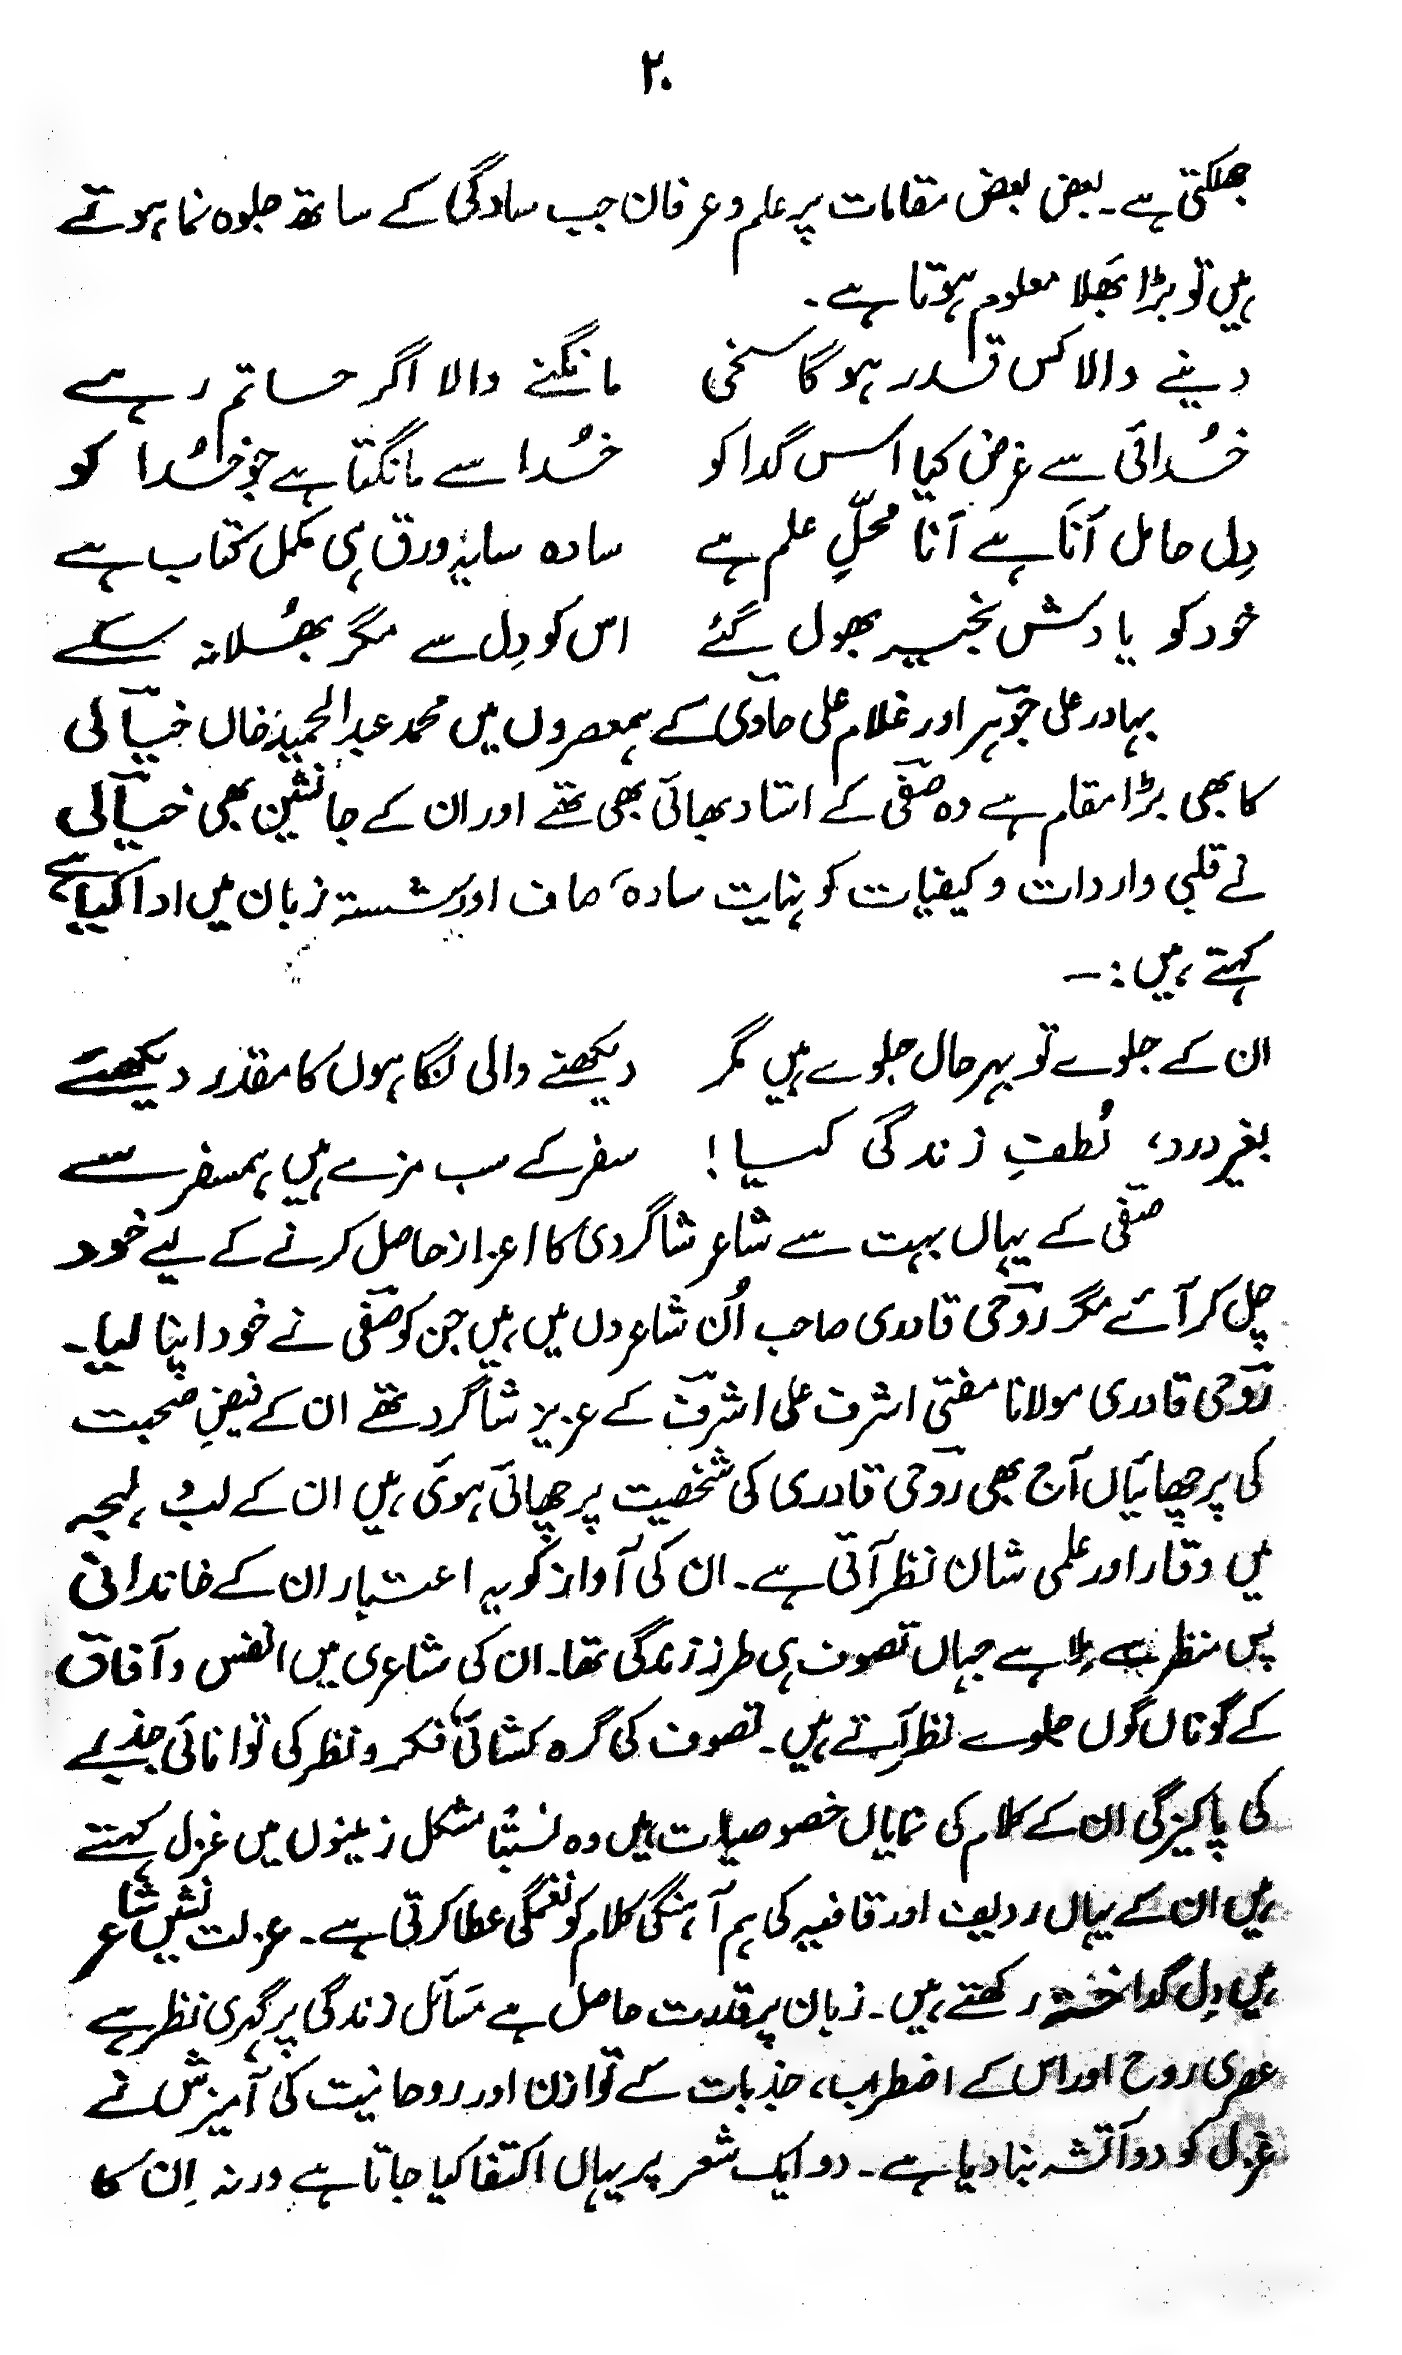 ۲۰
جھلکتی ہے۔ بعض بعض مقامات پر علم و عرفان جب سادگی کے ساتھ جلوہ نما ہوتے
ہیں تو بڑا بَھلا معلوم ہوتا ہے۔
دینے والا کس قدر ہوگا سخی مانگنے والا اگر حاتم رہے
خُدائی سے غرض کیا اس گدا کو خُدا سے مانگتا ہے جو خُدا کو
دِل حامل اَنَا ہے اَنا محلِّ علم ہے سادہ سا یہ ورق ہی مکمل کتاب ہے
خود کو یادش بخیر بھول گئے اس کو دِل سے مگر بھُلا نہ سکے
بہادر علی جوہر اور غلام علی حاوی کے ہمعصروں میں محمد عبدالحمید خاں خیالی
کا بھی بڑا مقام ہے وہ صفی کے استاد بھائی بھی تھے اور ان کے جانشین بھی خیالی
نے قلبی واردات و کیفیات کو نہایت سادہ، صاف اور شستہ زبان میں ادا کیا ہے
کہتے ہیں :—
ان کے جلوے تو بہر حال جلوے ہیں مگر دیکھنے والی نگاہوں کا مقدر دیکھئے
بغیر درد، لُطفِ زندگی کیا! سفر کے سب مزے ہیں ہمسفر سے
صفی کے یہاں بہت سے شاعر شاگردی کا اعزاز حاصل کرنے کے لیے خود
چل کر آئے مگر روحی قادری صاحب اُن شاعروں میں ہیں جن کو صفی نے خود اپنا لیا۔
روحی قادری مولانا مفتی اشرف علی اشرف کے عزیز شاگرد تھے ان کے فیضِ صحبت
کی پرچھائیاں آج بھی روحی قادری کی شخصیت پر چھائی ہوئی ہیں ان کے لب و لہجہ
میں وقار اور علمی شان نظر آتی ہے۔ ان کی آواز کو یہ اعتبار ان کے خاندانی
پس منظر سے ملا ہے جہاں تصوف ہی طرز زندگی تھا۔ ان کی شاعری میں انفس و آفاق
کے گوناں گوں جلوے نظر آتے ہیں۔ تصوف کی گرہ کشائی، فکر و نظر کی توانائی جذبے
کی پاکیزگی ان کے کلام کی نمایاں خصوصیات ہیں وہ نسبتاً مشکل زمینوں میں غزل کہتے
ہیں ان کے یہاں ردیف اور قافیہ کی ہم آہنگی کلام کو نغمگی عطا کرتی ہے۔ عزلت نشیں شاعر
ہیں دِل گداختہ رکھتے ہیں۔ زبان پر قدرت حاصل ہے مسائل زندگی پر گہری نظر ہے
عصری روح اور اس کے اضطراب، جذبات کے توازن اور روحانیت کی آمیزش نے
غزل کو دو آتشہ بنا دیا ہے۔ دو ایک شعر پر یہاں اکتفا کیا جاتا ہے ورنہ اِن کا